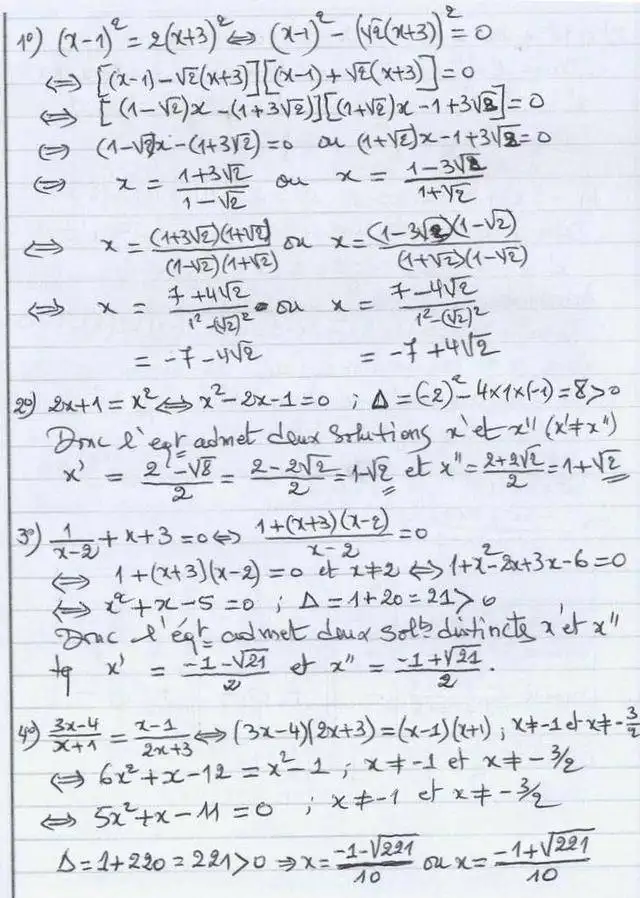 1°) (x-1)² = 2(x+3)² ⇔ (x-1)² - (√2(x+3))² = 0
⇔ [(x-1) - √2(x+3)][(x-1) + √2(x+3)] = 0
⇔ [(1-√2)x - (1+3√2)][(1+√2)x - 1+3√2] = 0
⇔ (1-√2)x - (1+3√2) = 0 ou (1+√2)x - 1+3√2 = 0
⇔ x = (1+3√2)/(1-√2) ou x = (1-3√2)/(1+√2)
⇔ x = (1+3√2)(1+√2)/(1-√2)(1+√2) ou x = (1-3√2)(1-√2)/(1+√2)(1-√2)
⇔ x = (7+4√2)/(1²-(√2)²) ou x = (7-4√2)/(1²-(√2)²)
= -7-4√2 = -7+4√2
2°) 2x+1 = x² ⇔ x²-2x-1 = 0 ; Δ = (-2)²-4×1×(-1) = 8 > 0
Donc l'éqt admet deux solutions x' et x'' (x' ≠ x'')
x' = (2-√8)/2 = (2-2√2)/2 = 1-√2 et x'' = (2+2√2)/2 = 1+√2
3°) 1/(x-2) + x+3 = 0 ⇔ (1+(x+3)(x-2))/(x-2) = 0
⇔ 1+(x+3)(x-2) = 0 et x≠2 ⇔ 1+x²-2x+3x-6 = 0
⇔ x²+x-5 = 0 ; Δ = 1+20 = 21 > 0
Donc l'éqt admet deux solts distincts x' et x''
tq x' = (-1-√21)/2 et x'' = (-1+√21)/2.
4°) (3x-4)/(x+1) = (x-1)/(2x+3) ⇔ (3x-4)(2x+3) = (x-1)(x+1) ; x≠-1 et x≠-3/2
⇔ 6x²+x-12 = x²-1 ; x≠-1 et x≠-3/2
⇔ 5x²+x-11 = 0 ; x≠-1 et x≠-3/2
Δ = 1+220 = 221 > 0 ⇒ x = (-1-√221)/10 ou x = (-1+√221)/10